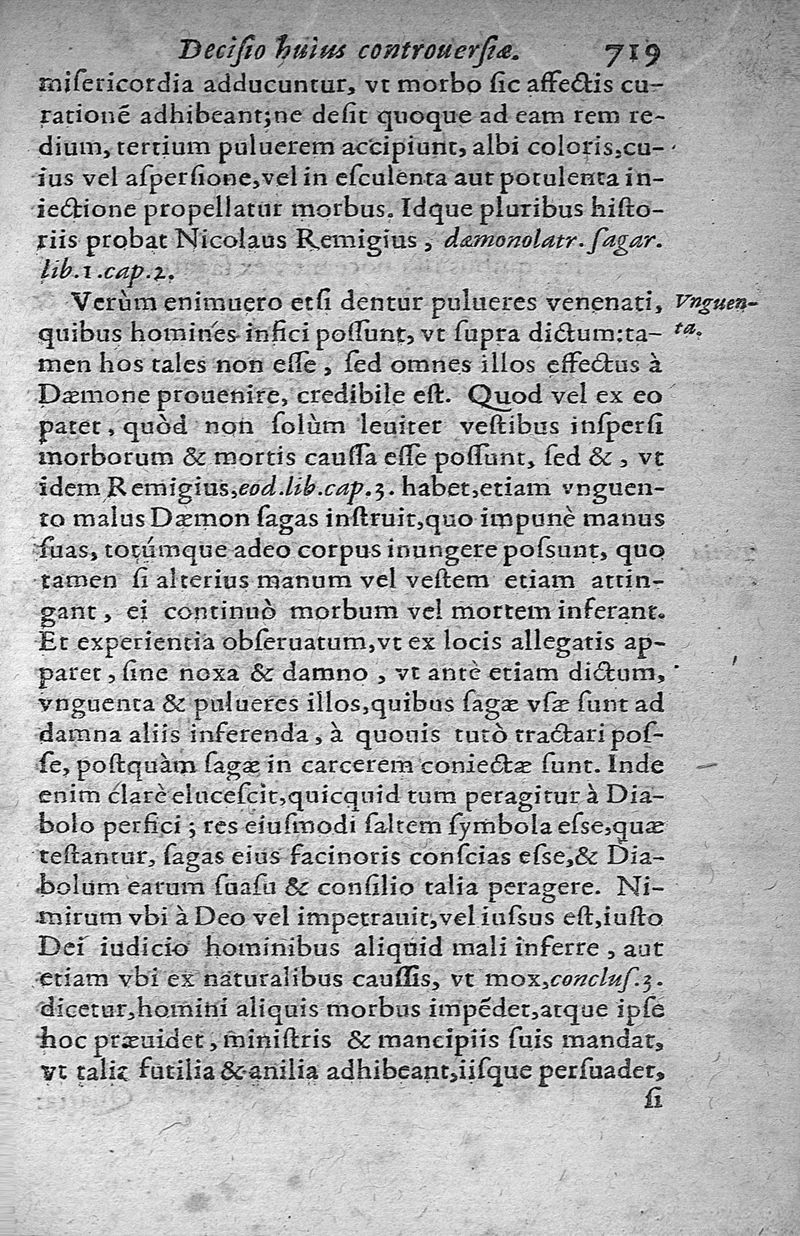 Deciſio huius controuerſiæ. 719
miſericordia adducuntur, vt morbo ſic affectis cu-
rationē adhibeant;ne deſit quoque ad eam rem re-
dium, tertium puluerem accipiunt, albi coloris,cu-
ius vel aſperſione,vel in eſculenta aut potulenta in-
iectione propellatur morbus. Idque pluribus hiſto-
riis probat Nicolaus Remigius, dæmonolatr. ſagar.
lib.1.cap.2.
Verùm enimuero etſi dentur pulueres venenati,
Vnguen-
quibus homines infici poſſunt, vt ſupra dictum:ta-
ta.
men hos tales non eſſe, ſed omnes illos effectus à
Dæmone prouenire, credibile eſt. Quod vel ex eo
patet, quòd non ſolùm leuiter veſtibus inſperſi
morborum & mortis cauſſa eſſe poſſunt, ſed &, vt
idem Remigius,eod.lib.cap.3. habet,etiam vnguen-
to malus Dæmon ſagas inſtruit,quo impunè manus
ſuas, totúmque adeo corpus inungere poſsunt, quo
tamen ſi alterius manum vel veſtem etiam attin-
gant, ei continuò morbum vel mortem inferant.
Et experientia obſeruatum,vt ex locis allegatis ap-
paret, ſine noxa & damno, vt antè etiam dictum,
vnguenta & pulueres illos,quibus ſagæ vſæ ſunt ad
damna aliis inferenda, à quouis tutò tractari poſ-
ſe, poſtquàm ſagæ in carcerem coniectæ ſunt. Inde
enim clarè eluceſcit,quicquid tum peragitur à Dia-
bolo perfici; res eiuſmodi ſaltem ſymbola eſse,quæ
teſtantur, ſagas eius facinoris conſcias eſse,& Dia-
bolum earum ſuaſu & conſilio talia peragere. Ni-
mirum vbi à Deo vel impetrauit,vel iuſsus eſt,iuſto
Dei iudicio hominibus aliquid mali inferre, aut
etiam vbi ex naturalibus cauſſis, vt mox,concluſ.3.
dicetur,homini aliquis morbus impēdet,atque ipſe
hoc præuidet, miniſtris & mancipiis ſuis mandat,
vt talia futilia & anilia adhibeant,iiſque perſuadet,
ſi